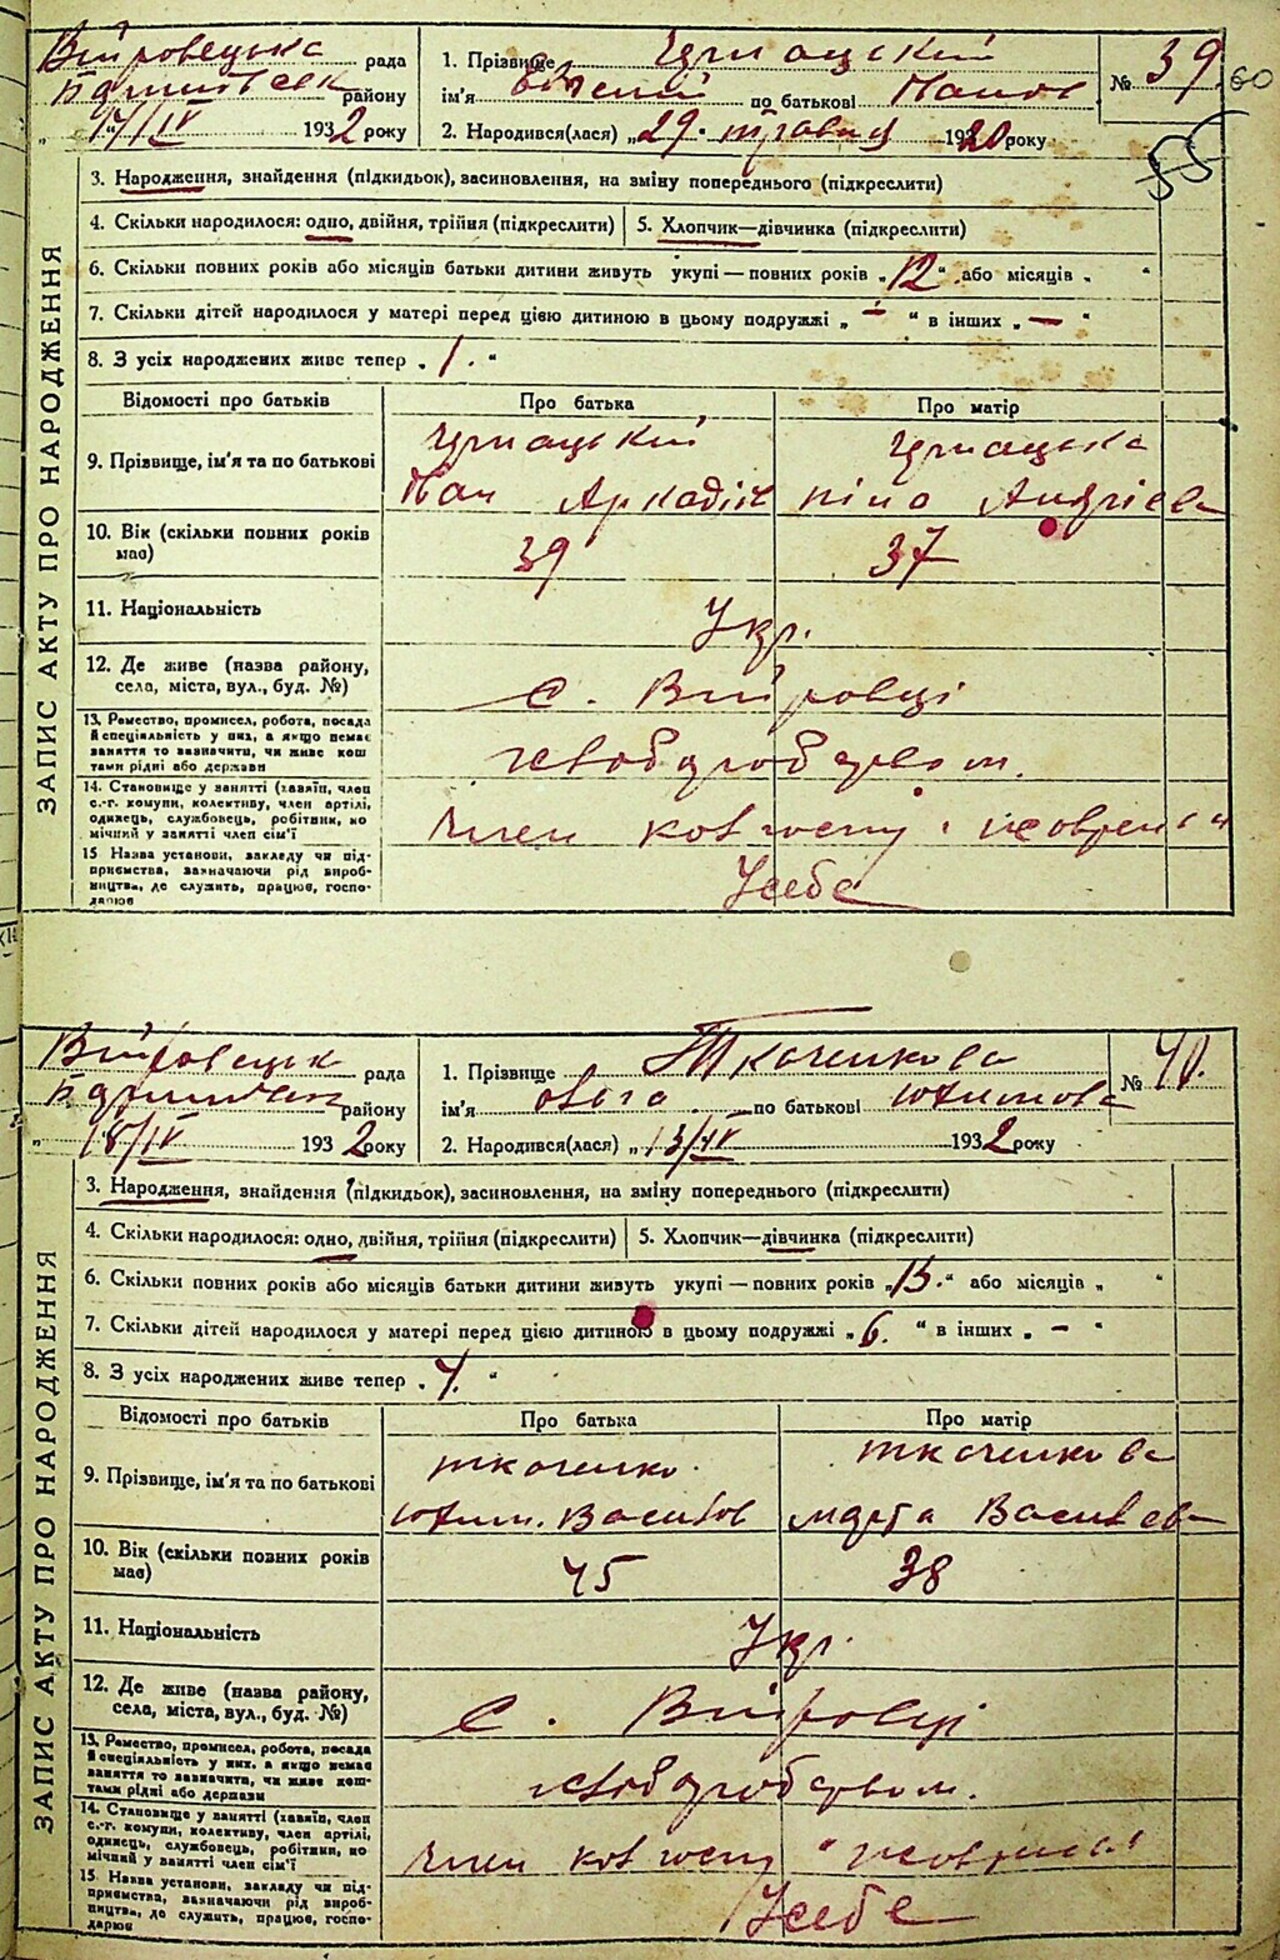 Війтовецька рада
району
17/IV 1932 року
1. Прізвище
ім'я Євгеній по батькові Панов
2. Народився(лася) „29. травня 1920 року
№ 39
60
55
ЗАПИС АКТУ ПРО НАРОДЖЕННЯ
3. Народження, знайдення (підкидьок), засиновлення, на зміну попереднього (підкреслити)
4. Скільки народилося: одно, двійня, трійня (підкреслити) 5. Хлопчик—дівчинка (підкреслити)
6. Скільки повних років або місяців батьки дитини живуть укупі — повних років „12“ або місяців „ “
7. Скільки дітей народилося у матері перед цією дитиною в цьому подружжі „–“ в інших „–“
8. З усіх народжених живе тепер „1.“
Відомості про батьків Про батька Про матір
9. Прізвище, ім'я та по батькові
Пан Аркадів Ніна Андріева
10. Вік (скільки повних років має) 39 37
11. Національність Укр.
12. Де живе (назва району, села, міста, вул., буд. №) с.
13. Ремество, промисел, робота, посада
й спеціальність у них, а якщо немає
заняття то зазначити, чи живе кош
тами рідні або держави
14. Становище у занятті (хазяїн, член
с.-г. комуни, колективу, член артілі,
одинець, службовець, робітник, по
мічний у занятті член сім'ї
член
15 Назва установи, закладу чи під-
приємства, зазначаючи рід вироб-
ництва, де служить, працює, госпо-
дарює
У себе
рада
району
18/IV 1932 року
1. Прізвище Ткаченкова
ім'я Ольга по батькові Юхимова
2. Народився(лася) „13/IV 1932 року
№ 40.
ЗАПИС АКТУ ПРО НАРОДЖЕННЯ
3. Народження, знайдення (підкидьок), засиновлення, на зміну попереднього (підкреслити)
4. Скільки народилося: одно, двійня, трійня (підкреслити) 5. Хлопчик—дівчинка (підкреслити)
6. Скільки повних років або місяців батьки дитини живуть укупі — повних років „15.“ або місяців „ “
7. Скільки дітей народилося у матері перед цією дитиною в цьому подружжі „6.“ в інших „–“
8. З усіх народжених живе тепер „ “
Відомості про батьків Про батька Про матір
Ткаченко Ткаченкова
9. Прізвище, ім'я та по батькові
Юхим. Васильов Марта Васильева
10. Вік (скільки повних років має) 45 38
11. Національність Укр.
12. Де живе (назва району, села, міста, вул., буд. №) с.
13. Ремество, промисел, робота, посада
й спеціальність у них, а якщо немає
заняття то зазначити, чи живе кош-
тами рідні або держави
14. Становище у занятті (хазяїн, член
с.-г. комуни, колективу, член артілі,
одинець, службовець, робітник, по
мічний у занятті член сім'ї
член
15 Назва установи, закладу чи під-
приємства, зазначаючи рід вироб-
ництва, де служить, працює, госпо-
дарює
У себе